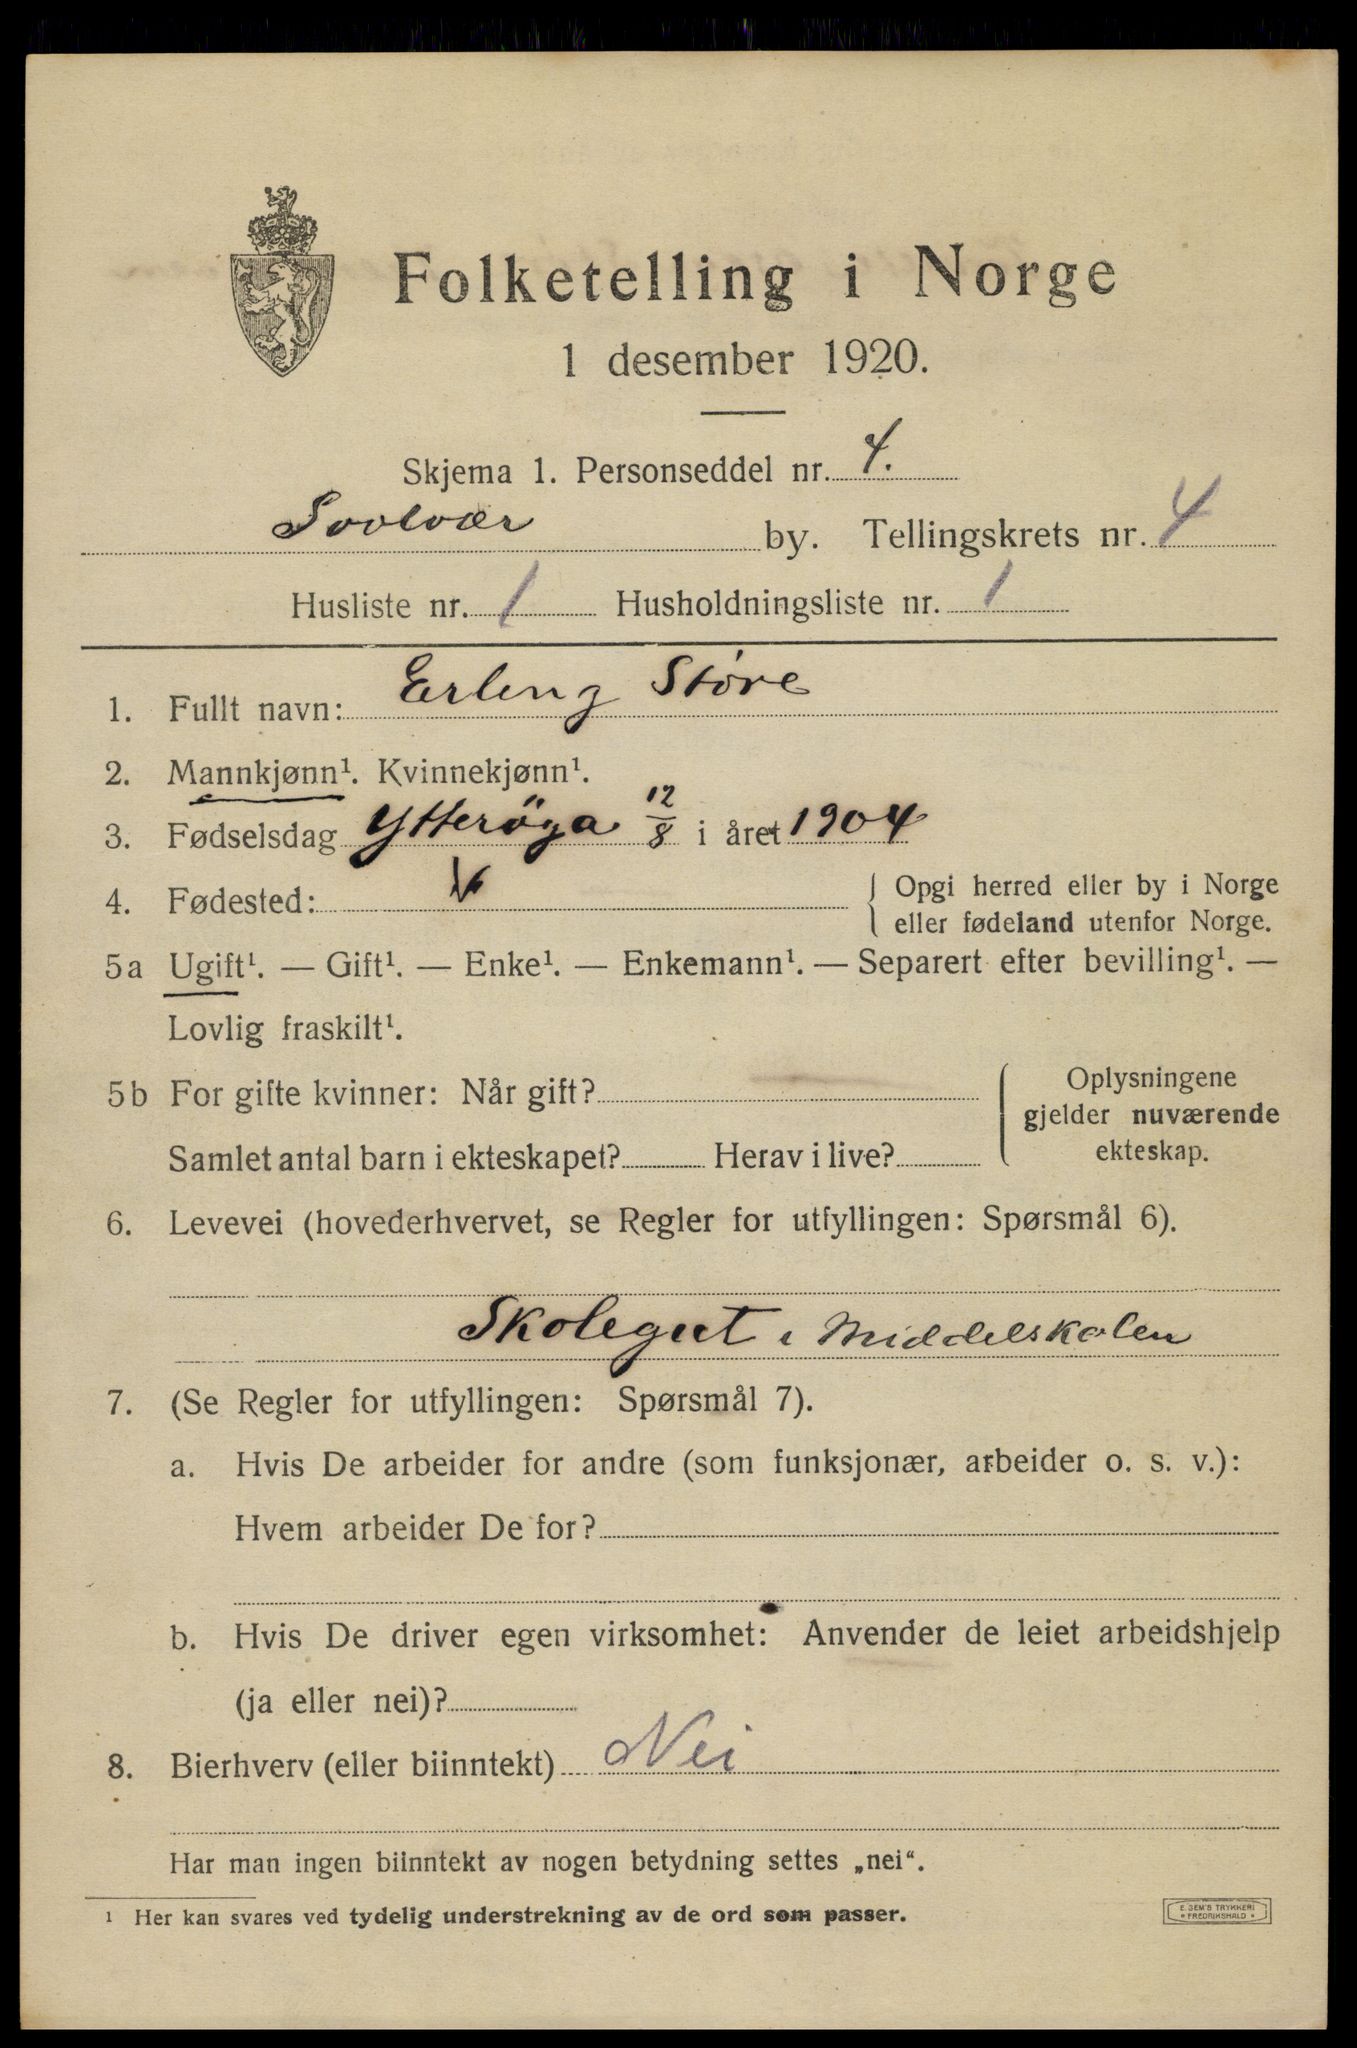 Folketelling i Norge
1 desember 1920.
Skjema 1. Personseddel nr. 4.
Svolvær by. Tellingskrets nr. 4
Husliste nr. 1 Husholdningsliste nr. 1
1. Fullt navn: Erling Støre
2. Mannkjønn¹. Kvinnekjønn¹.
3. Fødselsdag Ytterøya 12/8 i året 1904
4. Fødested: { Opgi herred eller by i Norge
eller fødeland utenfor Norge.
5a Ugift¹. — Gift¹. — Enke¹. — Enkemann¹. — Separert efter bevilling¹. —
Lovlig fraskilt¹.
5b For gifte kvinner: Når gift? { Oplysningene
gjelder nuværende
Samlet antal barn i ekteskapet? Herav i live? ekteskap.
6. Levevei (hovederhvervet, se Regler for utfyllingen: Spørsmål 6).
Skolegut i Middelskolen
7. (Se Regler for utfyllingen: Spørsmål 7).
a. Hvis De arbeider for andre (som funksjonær, arbeider o. s. v.):
Hvem arbeider De for?
b. Hvis De driver egen virksomhet: Anvender de leiet arbeidshjelp
(ja eller nei)?
8. Bierhverv (eller biinntekt) Nei
Har man ingen biinntekt av nogen betydning settes „nei“.
¹ Her kan svares ved tydelig understrekning av de ord som passer.
E. SEM'S TRYKKERI
• FREDRIKSHALD •